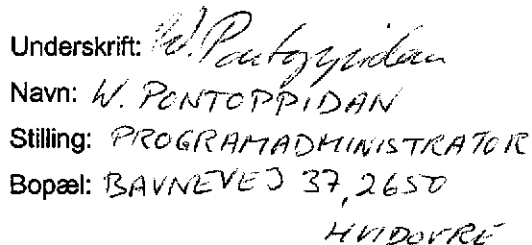 Underskrift: W. Pontoppidan
Navn: W. PONTOPPIDAN
Stilling: PROGRAMADMINISTRATOR
Bopæl: BAVNEVEJ 37, 2650
HVIDOVRE